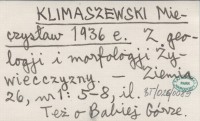 KLIMASZEWSKI Mie-
czysław 1936 e. Z geo-
logji i morfologji Ży-
wiecczyzny. – Ziemia
26, nr 1: 5-8, il.
Też o Babiej Górze.